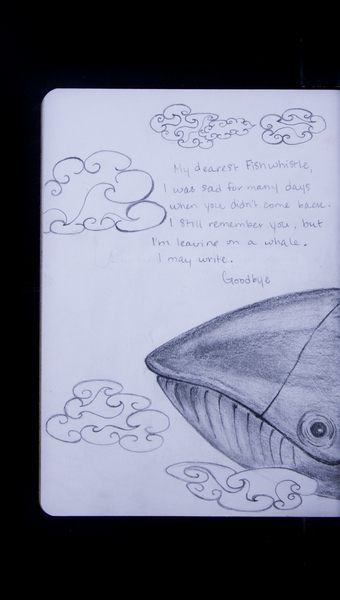 My dearest Fishwhistle,
I was sad for many days
when you didn't come back.
I still remember you, but
I'm leaving on a whale.
I may write.
Goodbye